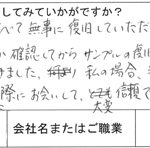 してみていかがですか?
べて無事に復旧していただ
か確認してからサンプルの復旧
きました。私の場合、
際にお会いして、信頼で
大変
会社名またはご職業